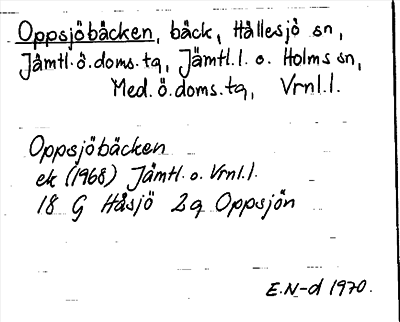 Oppsjöbäcken, bäck, Hällesjö sn,
Jämtl. ö. doms. tg, Jämtl. l. o. Holms sn,
Med. ö. doms. tg, Vrnl. l.
Oppsjöbäcken
ek (1968) Jämtl. o. Vrnl. l.
18 G Håsjö 2g Oppsjön
E. N-d 1970.